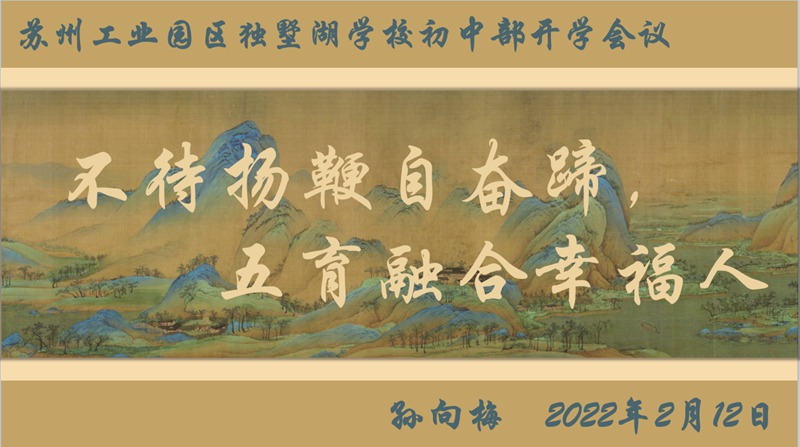 苏州工业园区独墅湖学校初中部开学会议
不待扬鞭自奋蹄，
五育融合幸福人
孙向梅 2022年2月12日